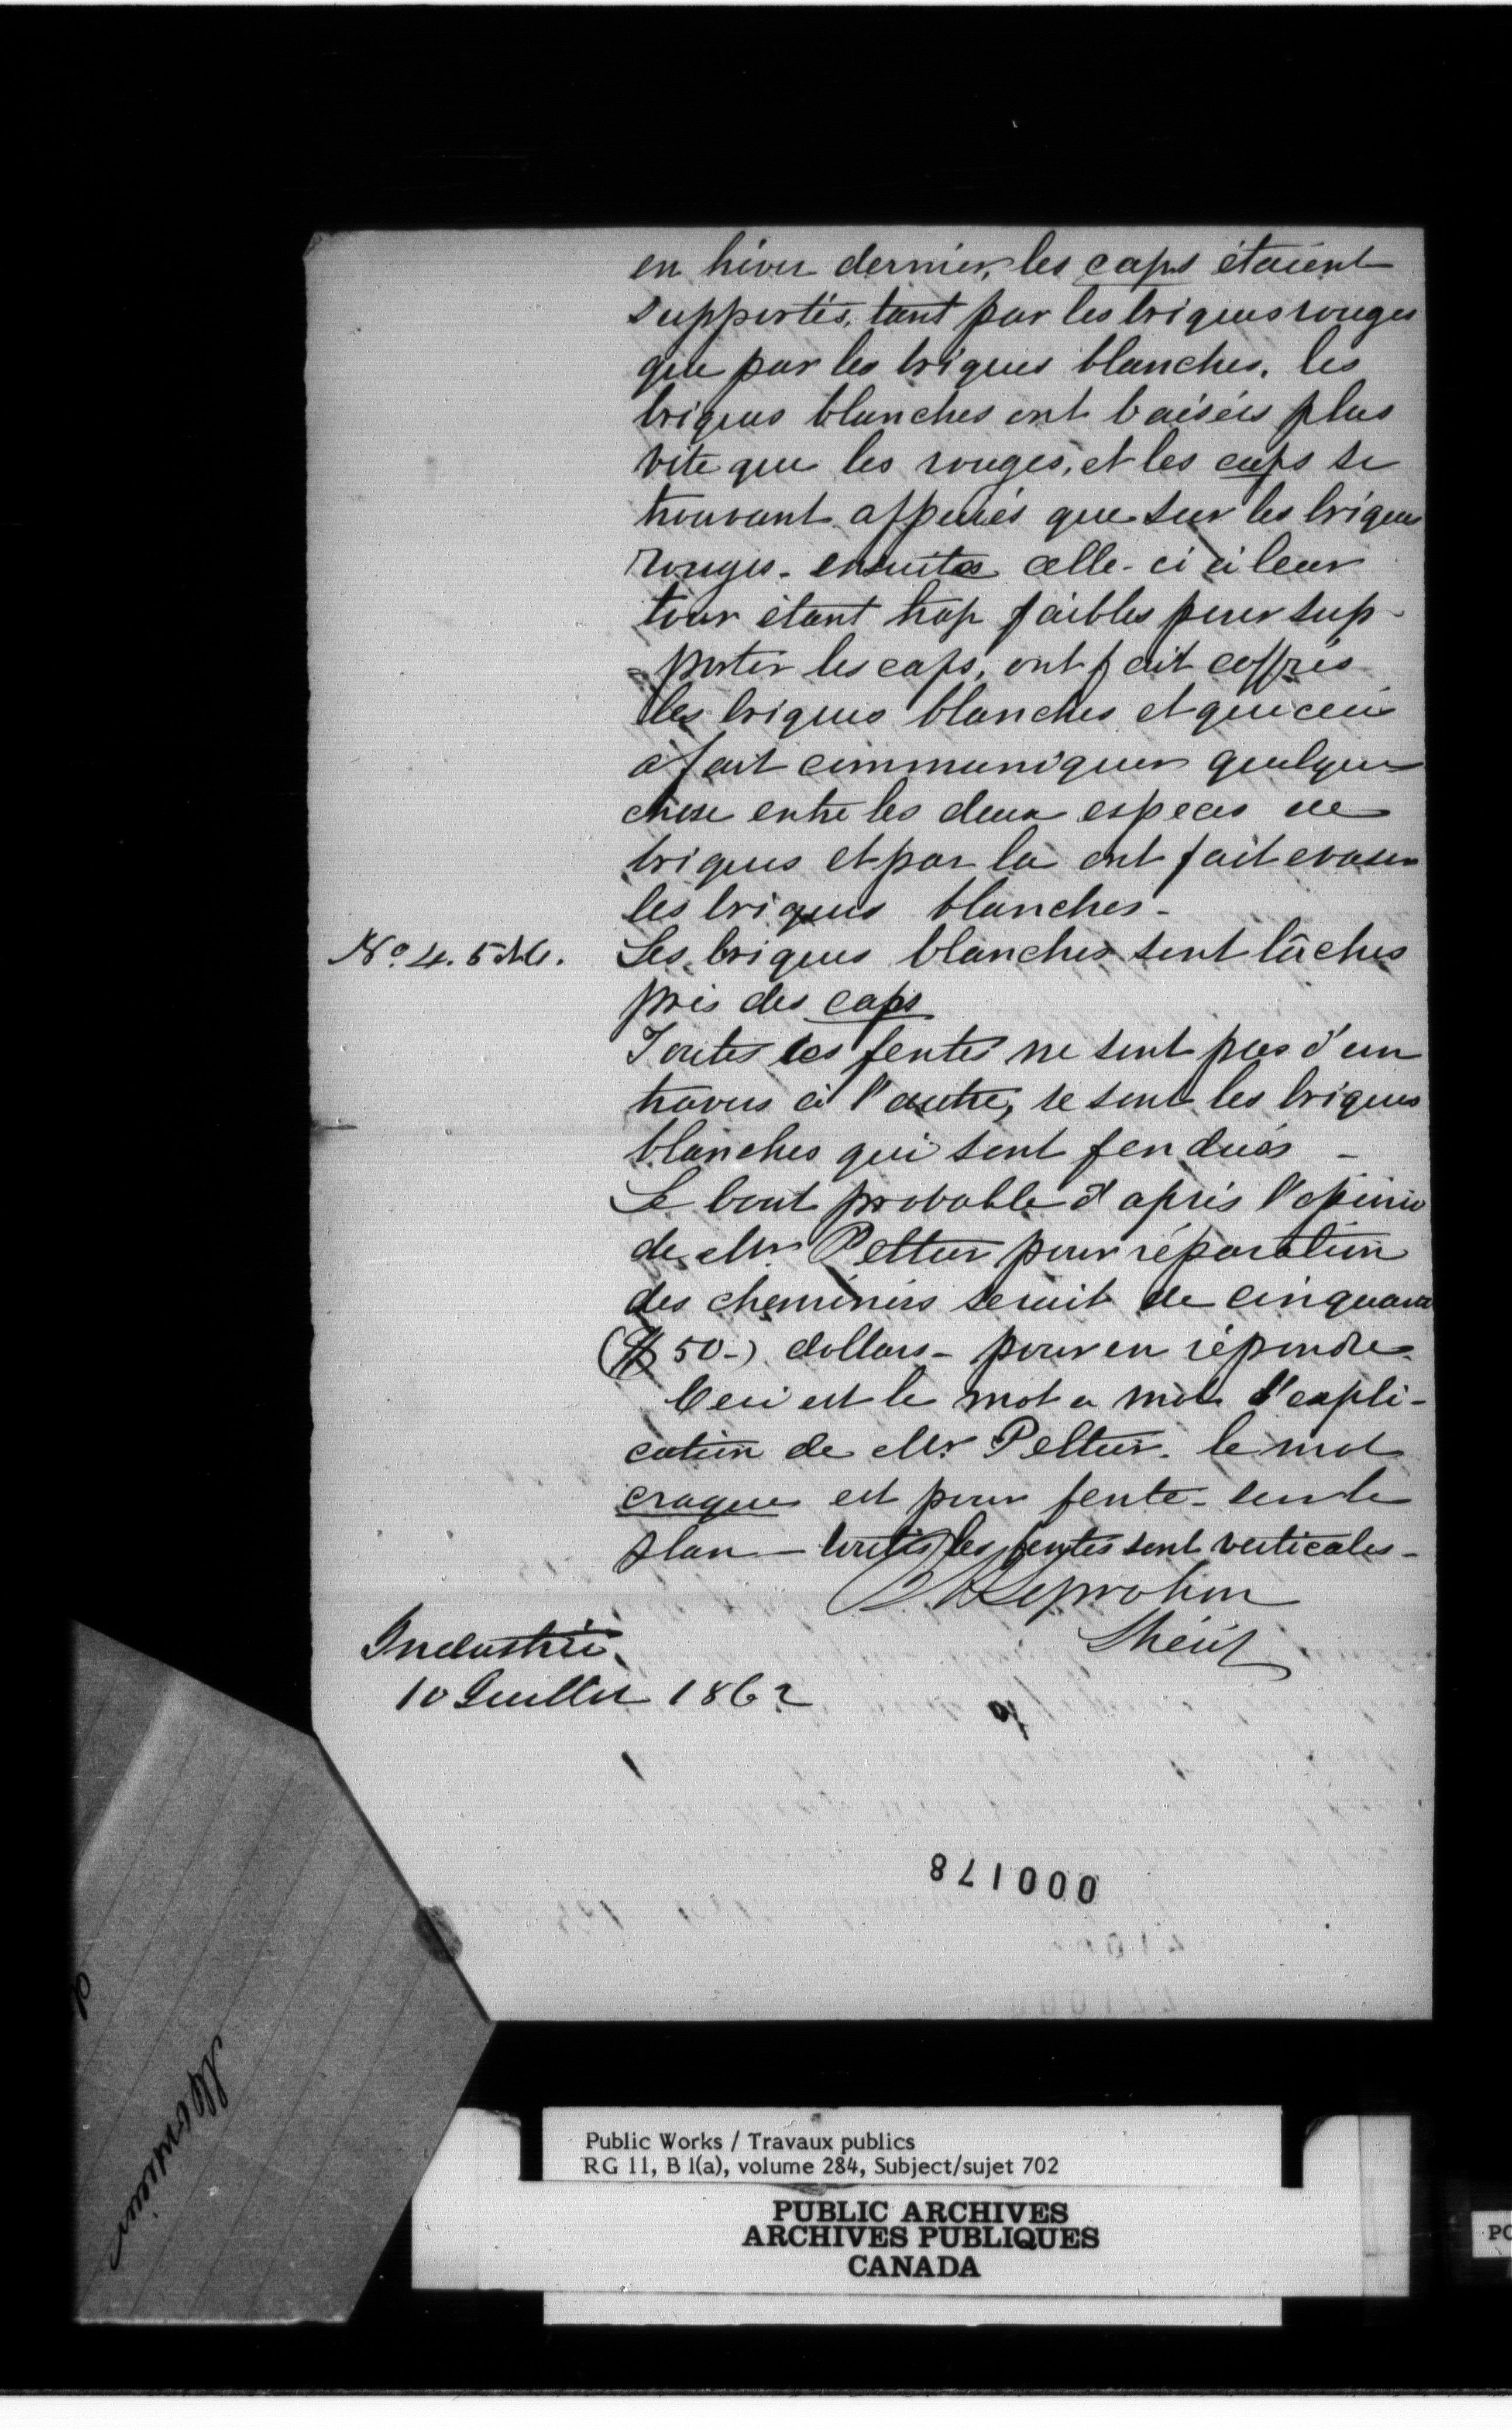 en hiver dernier, les caps étaient
supportés, tant par les briques rouges
que par les briques blanches, les
briques blanches ont baisées plus
vite que les rouges, et les caps se
trouvant appuiés que sur les briques
rouges - ensuite celle-ci à leur
tour étant trop faibles pour sup-
porter les caps, ont fait coffrés
les briques blanches et que ceci
a fait communiquer quelque
chose entre les deux especes de
briques et par la ont fait evaser
les briques blanches -
No 4. 5 Les briques blanches sont lâches
près des caps
Toutes les fentes ne sont pas d'un
travers à l'autre, se sont les briques
blanches qui sont fendues -
Le probable d'après l'opinio
de Mr Peltier pour réparation
des cheminées serait de cinquante
($ 50-) dollars - pour en répondre.
Ceci est le mot a mot d'expli-
cation de Mr Peltier. le mot
craques est pour fente - sur le
plan - toutes les fentes sont verticales -
Leprohon
Shérif
Industrie,
10 Juillet 1862
000178
Monsieur
Public Works / Travaux publics
RG 11, B 1(a), volume 284, Subject/sujet 702
PUBLIC ARCHIVES
ARCHIVES PUBLIQUES
CANADA